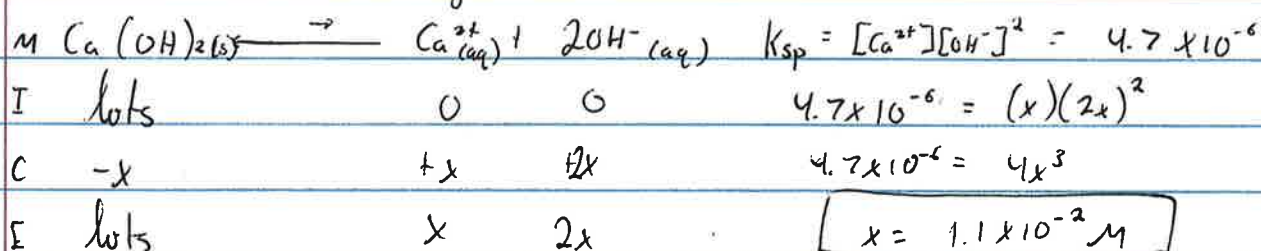 M Ca(OH)₂(s) → Ca²⁺(aq) + 2OH⁻(aq) Ksp = [Ca²⁺][OH⁻]² = 4.7 x10⁻⁶
I lots 0 0 4.7x10⁻⁶ = (x)(2x)²
C -x +x +2x 4.7x10⁻⁶ = 4x³
E lots x 2x x = 1.1 x10⁻² M